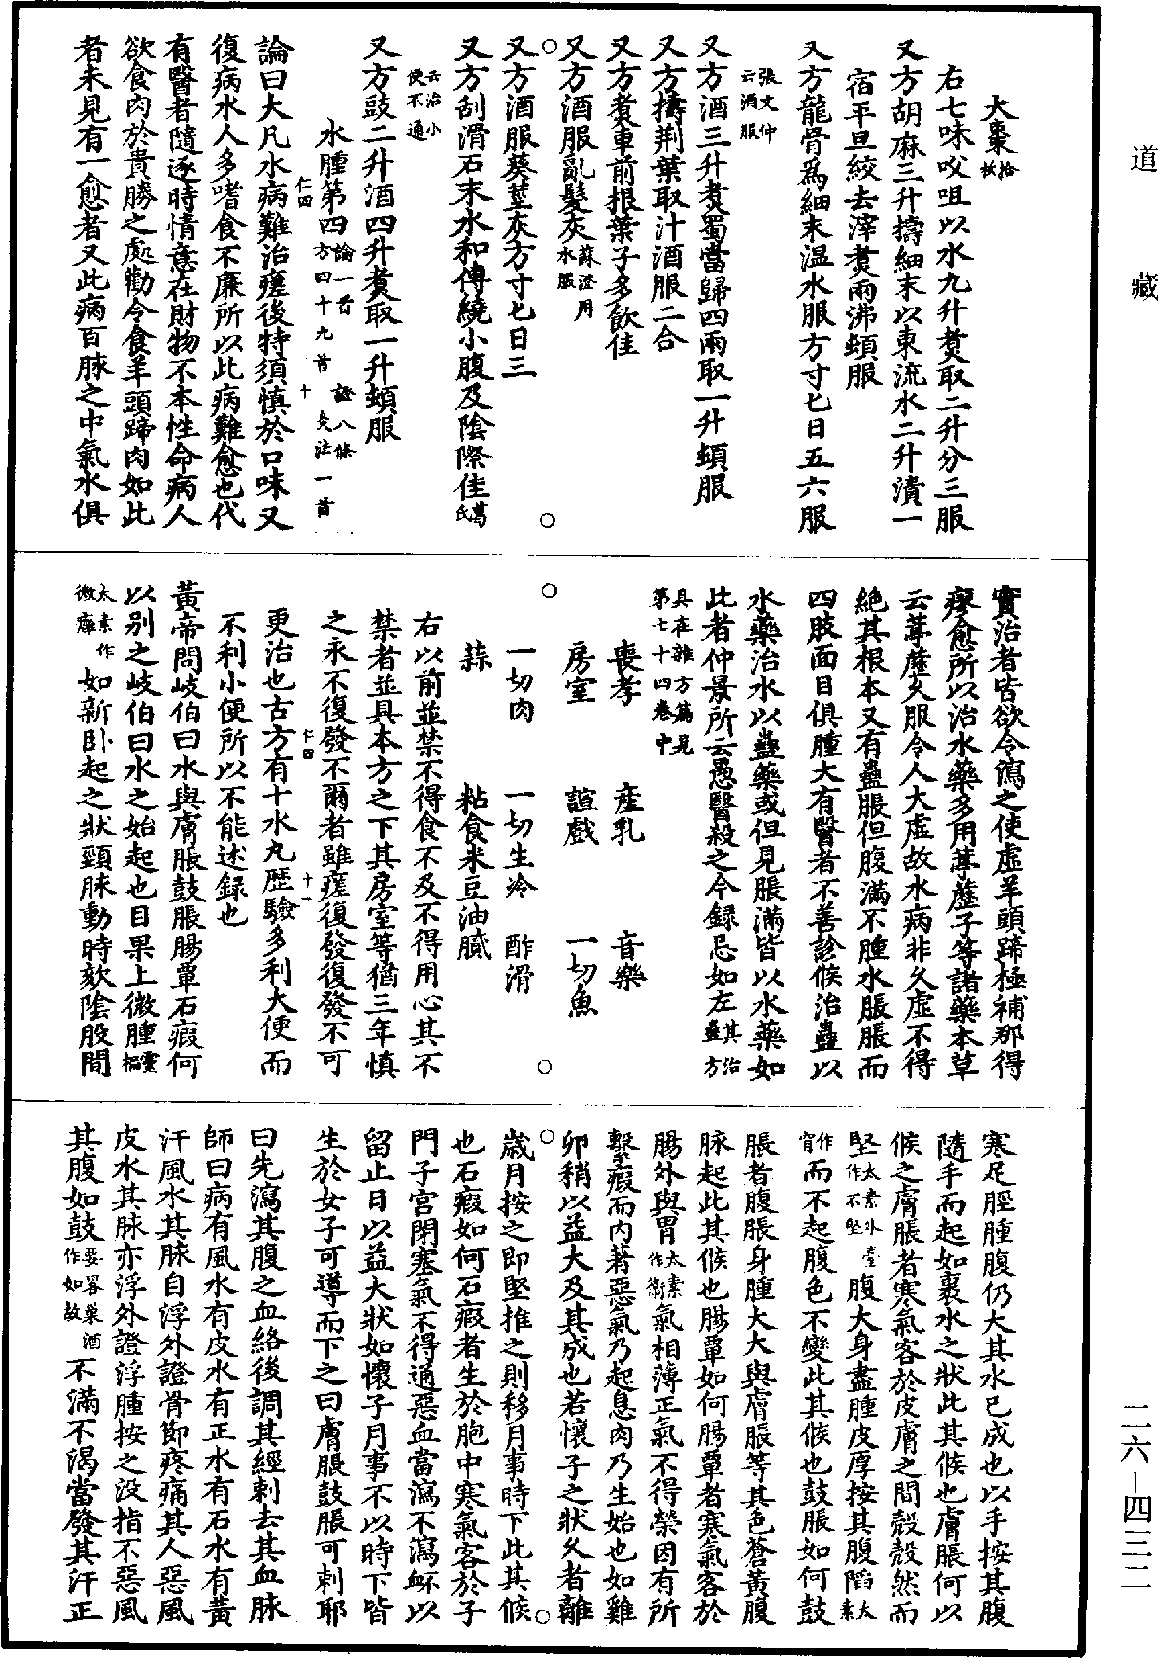 道藏
大棗拾枚
右七味㕮咀以水九升煑取二升分三服
又方胡麻三升擣細末以東流水二升漬一
宿平旦絞去滓煑兩沸頓服
又方龍骨爲細末温水服方寸匕日五六服
張文仲云酒服
又方酒三升煑蜀當歸四兩取一升頓服
又方擣荆葉取汁酒服二合
又方煑車前根葉子多飲佳
又方酒服亂髮灰蘇澄用水服
又方酒服葵莖灰方寸匕日三
又方刮滑石末水和傅繞小腹及陰際佳葛氏
云治小便不通
又方豉二升酒四升煑取一升頓服
水腫第四論一首 證八條 方四十九首 灸法一首
仁四 十
論曰大凡水病難治瘥後特須慎於口味又
復病水人多嗜食不廉所以此病難愈也代
有醫者隨逐時情意在財物不本性命病人
欲食肉於貴勝之處勸令食羊頭蹄肉如此
者未見有一愈者又此病百脉之中氣水俱
實治者皆欲令瀉之使虚羊頭蹄極補那得
療愈所以治水藥多用葶藶子等諸藥本草
云葶藶久服令人大虚故水病非久虚不得
絶其根本又有蠱脹但腹滿不腫水脹脹而
四肢面目俱腫大有醫者不善診候治蠱以
水藥治水以蠱藥或但見脹滿皆以水藥如
此者仲景所云愚醫殺之今録忌如左其治蠱方
具在雜方篇見第七十四卷中
喪孝 産乳 音樂
房室 諠戲 一切魚
一切肉 一切生冷 酢滑
蒜 粘食米豆油膩
右以前並禁不得食不及不得用心其不
禁者並具本方之下其房室等猶三年慎
之永不復發不爾者雖瘥復發復發不可
仁四 十一
更治也古方有十水丸歷驗多利大便而
不利小便所以不能述録也
黃帝問岐伯曰水與膚脹鼓脹腸覃石瘕何
以别之岐伯曰水之始起也目果上微腫靈樞
太素作微癰如新卧起之狀頸脉動時欬陰股間
寒足脛腫腹仍大其水已成也以手按其腹
隨手而起如裹水之狀此其候也膚脹何以
候之膚脹者寒氣客於皮膚之間殼殼然而
堅太素外臺作不堅腹大身盡腫皮厚按其腹陷太素
作窅而不起腹色不變此其候也鼓脹如何鼓
脹者腹脹身腫大大與膚脹等其色蒼黃腹
脉起此其候也腸覃如何腸覃者寒氣客於
腸外與胃太素作衛氣相薄正氣不得榮因有所
繫瘕而内著惡氣乃起息肉乃生始也如雞
卵稍以益大及其成也若懷子之狀久者離
歲月按之即堅推之則移月事時下此其候
也石瘕如何石瘕者生於胞中寒氣客於子
門子宮閉塞氣不得通惡血當瀉不瀉衃以
留止日以益大狀如懷子月事不以時下皆
生於女子可導而下之曰膚脹鼓脹可刺耶
曰先瀉其腹之血絡後調其經刺去其血脉
師曰病有風水有皮水有正水有石水有黃
汗風水其脉自浮外證骨節疼痛其人惡風
皮水其脉亦浮外證浮腫按之没指不惡風
其腹如鼓要畧巢源作如故不滿不渴當發其汗正
二六—四三二